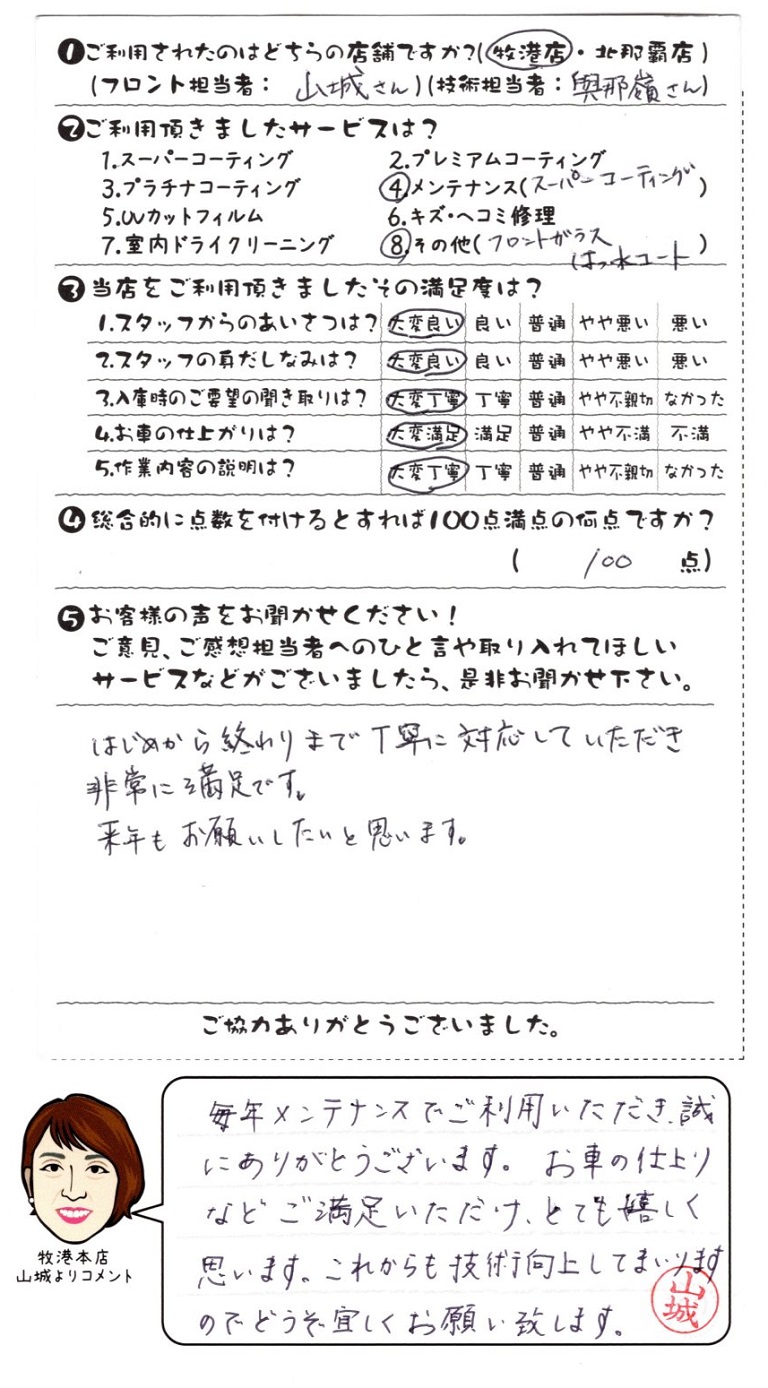 ❶ご利用されたのはどちらの店舗ですか?(牧港店・北那覇店)
(フロント担当者: 山城さん)(技術担当者:與那嶺さん)
❷ご利用頂きましたサービスは?
1.スーパーコーティング 2.プレミアムコーティング
3.プラチナコーティング ④メンテナンス(スーパーコーティング)
5.UVカットフィルム 6.キズ・ヘコミ修理
7.室内ドライクリーニング ⑧.その他(フロントガラス
はっ水コート)
❸当店をご利用頂きましたその満足度は?
1.スタッフからのあいさつは? 大変良い 良い 普通 やや悪い 悪い
2.スタッフの身だしなみは? 大変良い 良い 普通 やや悪い 悪い
3.入庫時のご要望の聞き取りは? 大変丁寧 丁寧 普通 やや不親切 なかった
4.お車の仕上がりは? 大変満足 満足 普通 やや不満 不満
5.作業内容の説明は? 大変丁寧 丁寧 普通 やや不親切 なかった
❹総合的に点数を付けるとすれば100点満点の何点ですか?
( 100 点)
❺お客様の声をお聞かせください!
ご意見、ご感想担当者へのひと言や取り入れてほしい
サービスなどがございましたら、是非お聞かせ下さい。
はじめから終わりまで丁寧に対応していただき
非常に満足です。
来年もお願いしたいと思います。
ご協力ありがとうございました。
毎年メンテナンスでご利用いただき、誠
にありがとうございます。お車の仕上り
などご満足いただけ、とても嬉しく
思います。これからも技術向上してまいります
のでどうぞ宜しくお願い致します。
山城
牧港本店
山城よりコメント